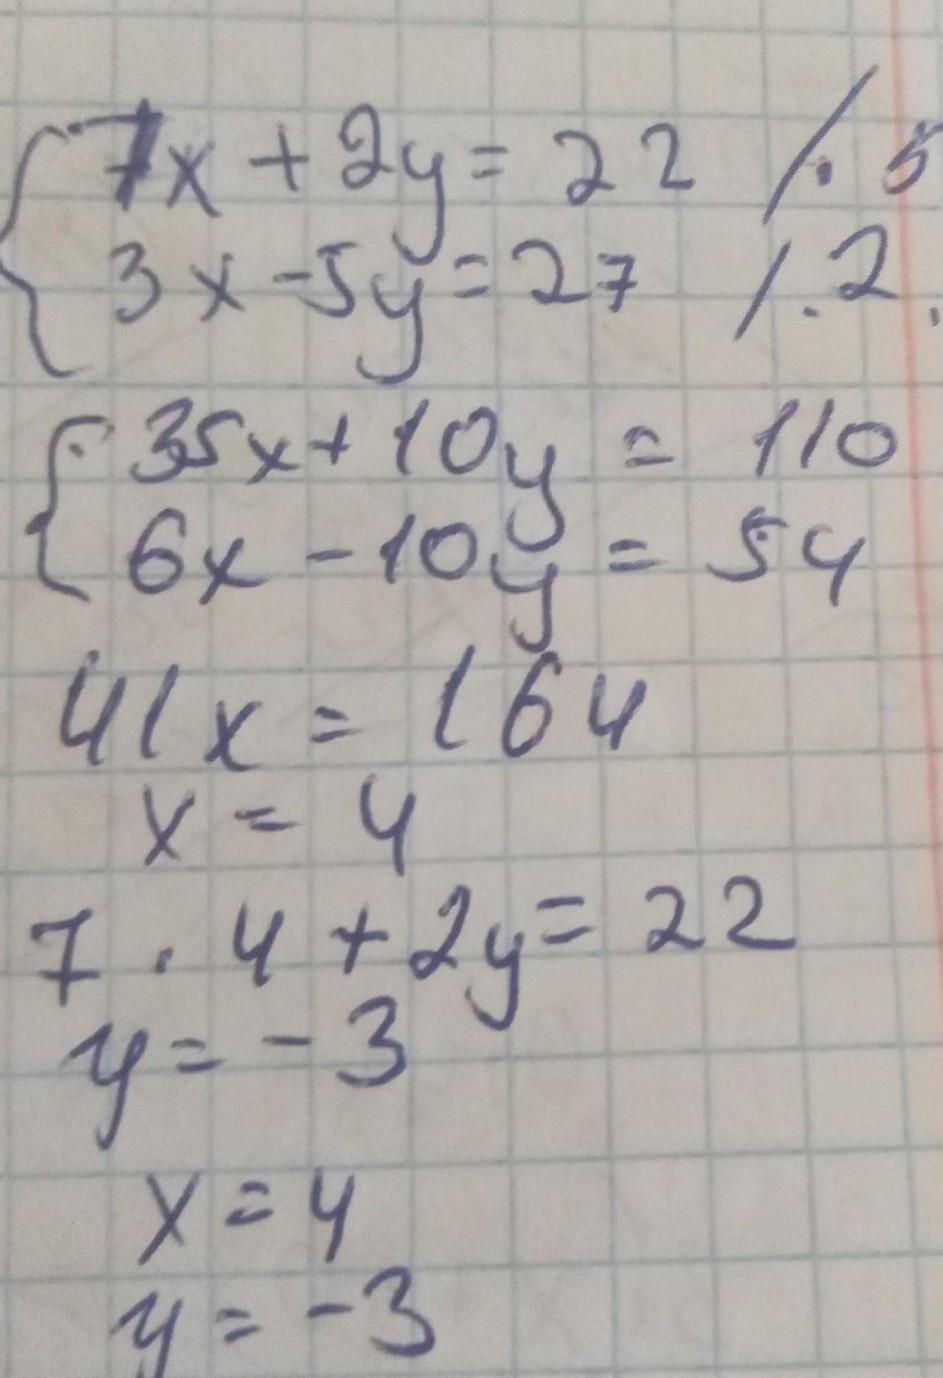 7x + 2y = 22 / · 5
3x - 5y = 27 / · 2
35x + 10y = 110
6x - 10y = 54
41x = 164
x = 4
7 · 4 + 2y = 22
y = - 3
x = 4
y = - 3